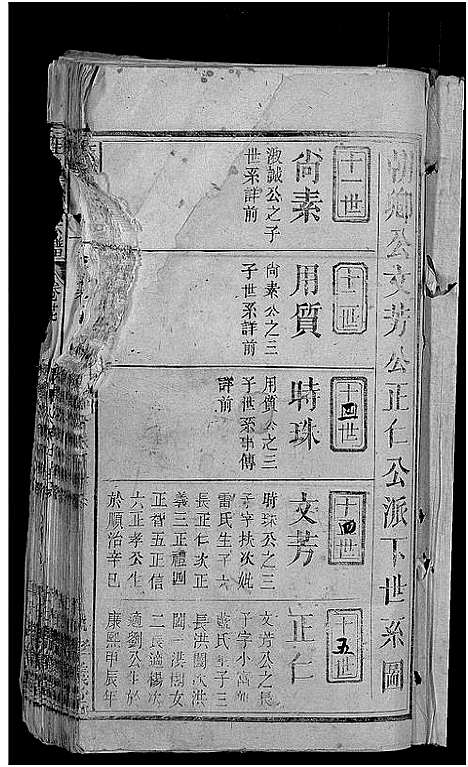 朝鄉公文芳公正仁公派下世系圖
十一世
尙素
波誠公之子
世系詳前
十二世
用質
尙素公之三
子世系詳前
十四世
時珠
用質公之三
子世系事傳
詳前
十四世
文芳
時珠公之三
子字扶次妣
雷氏生子六
長正仁次正
義三正禮四
正智五正信
六正孝公生
於順治辛巳
十五世
正仁
文芳公之長
子字小
戴氏生子三
長洪閣次洪
閩三洪閣女
二長適楊次
適劉公生於
康熙甲辰年